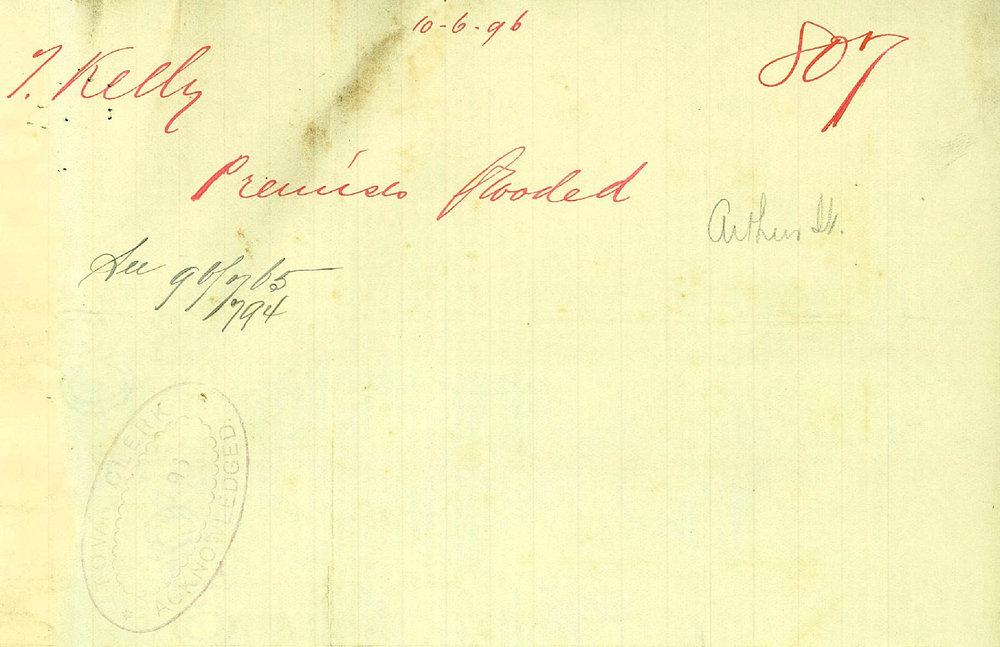 10-6-96
807
T. Kelly
Premises flooded
Arthur St.
See 96/765
794
TOWN CLERK
ACKNOWLEDGED.